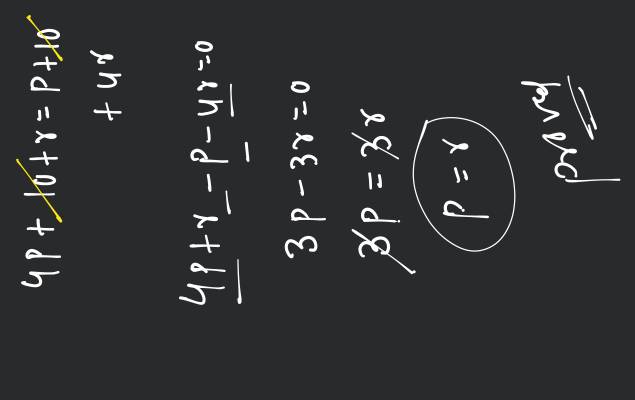 4p + 10 + r = p + 10
+ 4r
4p + r - p - 4r = 0
3p - 3r = 0
3p = 3r
p = r
proved